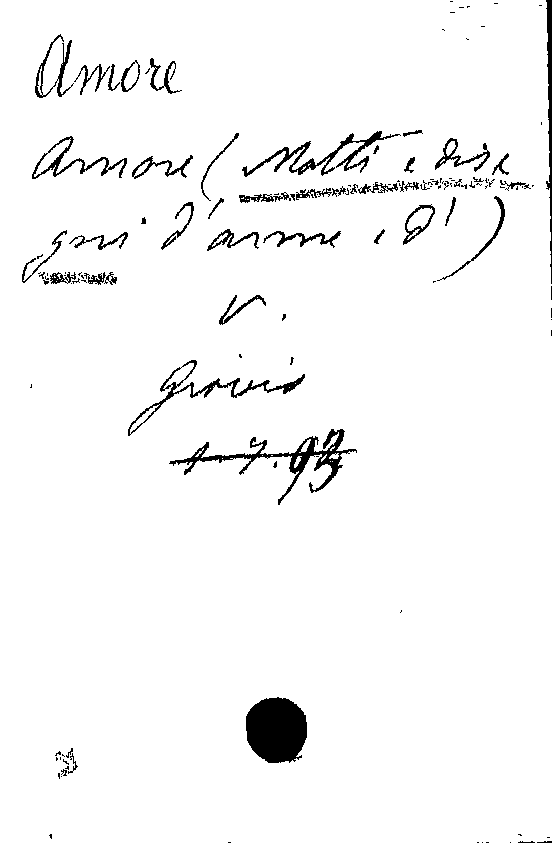 Amore
Amore (Motti e dise
gni d'arme, e d')
v.
Giovio
1.7.93